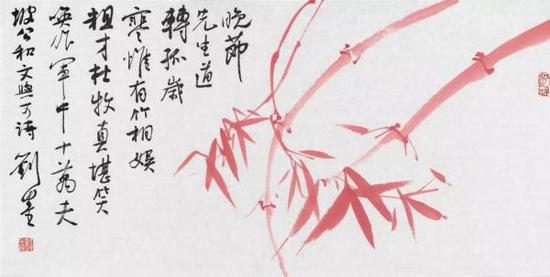 晚節
先生道
轉孤歲
寒惟有竹相娛
粗才杜牧真堪笑
喚作軍中十萬夫
坡公和文與可詩 劉墨